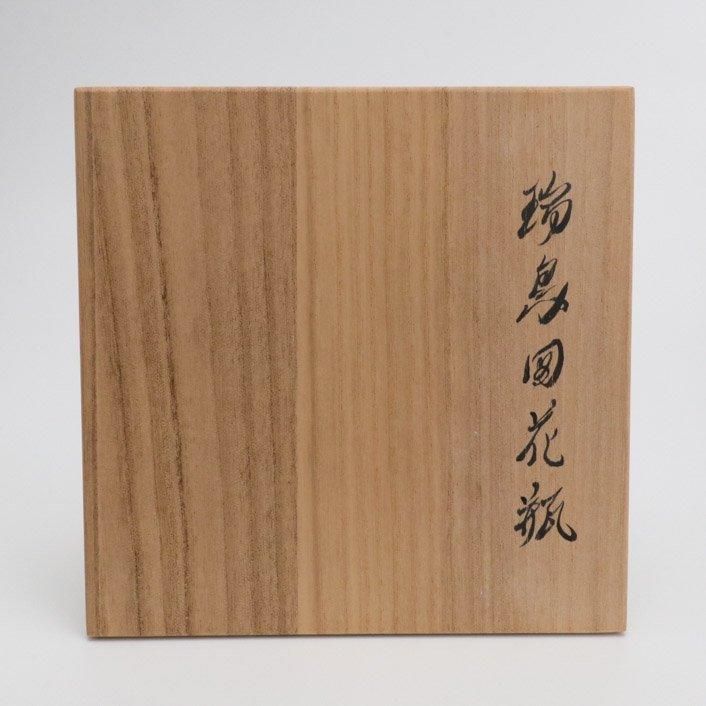 瑞鳥図花瓶